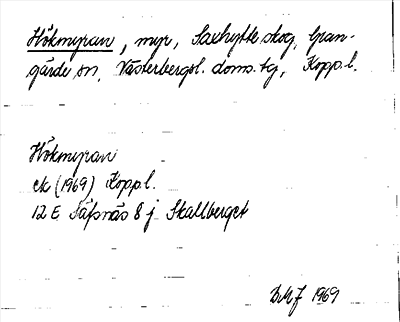 Hökmyran, myr, Saxhytte skog, Gran-
gärde sn, Västerbergsl. doms. tg, Kopp.l.
Hökmyran
ek (1969) Kopp.l.
12 E Säfsnäs 8 j Skallberget
BMJ 1969